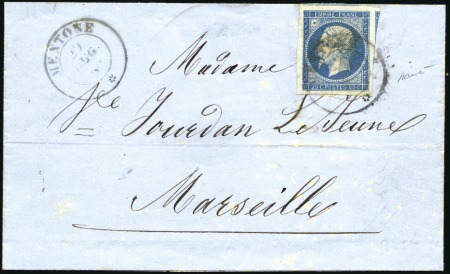 MENTONE
EMPIRE FRANC
20c POSTES 20c
Madame
Jourdan Le Jeune
Marseille